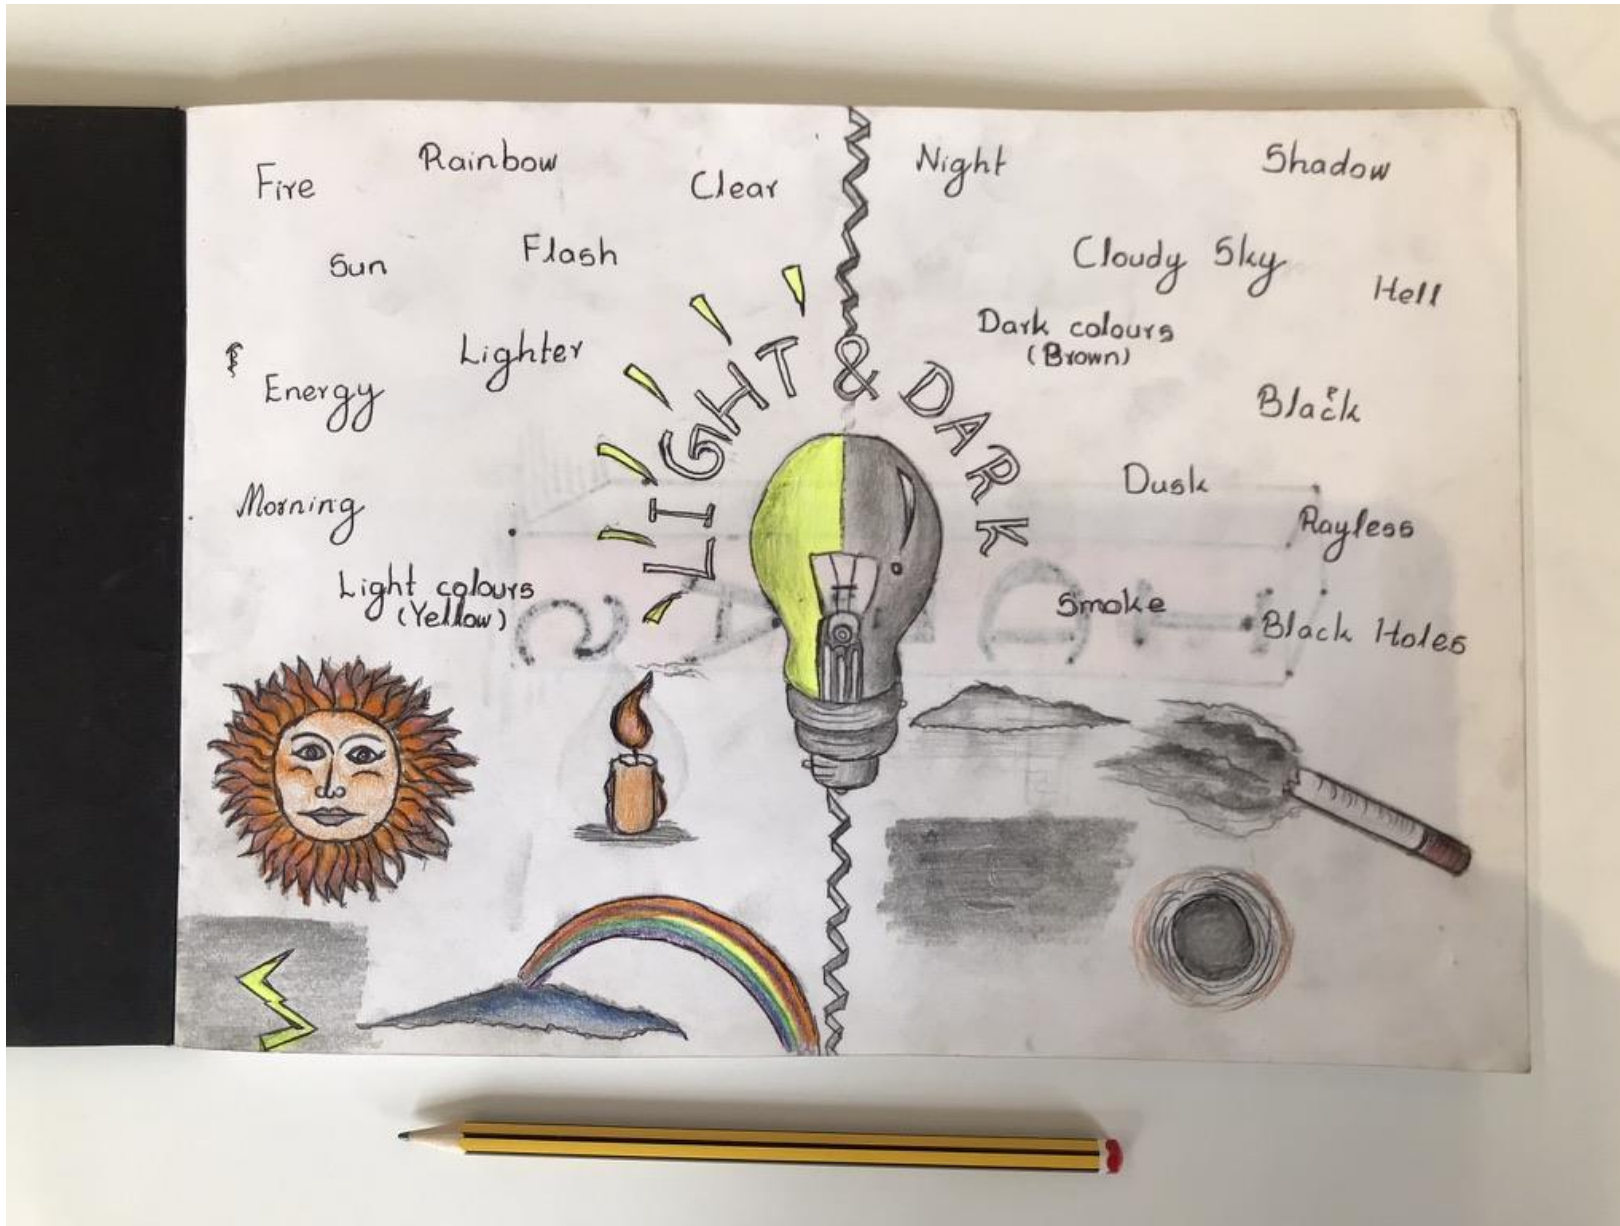 Fire
Rainbow
Clear
Sun
Flash
Lighter
Energy
Morning
Light colours
(Yellow)
LIGHT & DARK
Night
Shadow
Cloudy Sky
Hell
Dark colours
(Brown)
Black
Dusk
Rayless
Smoke
Black Holes